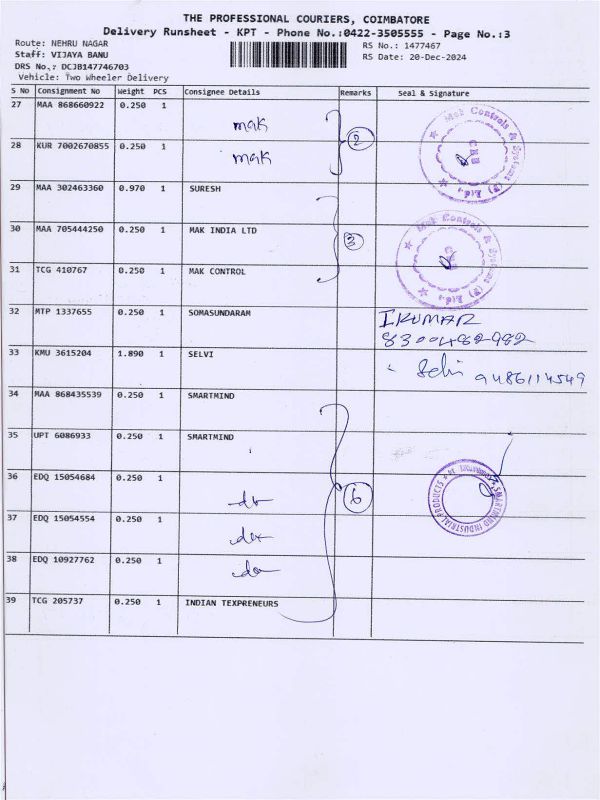 THE PROFESSIONAL COURIERS, COIMBATORE
Delivery Runsheet - KPT - Phone No.:0422-3505555 - Page No.:3
Route: NEHRU NAGAR
Staff: VIJAYA BANU
DRS No.: DCJB147746703
Vehicle: Two Wheeler Delivery
RS No.: 1477467
RS Date: 20-Dec-2024
S No Consignment No Weight PCS Consignee Details Remarks Seal & Signature
27 MAA 868660922 0.250 1 mak
2
28 KUR 7002670855 0.250 1 mak
Mak Controls & Systems (P) Ltd.,
CHB
29 MAA 302463360 0.970 1 SURESH
30 MAA 705444250 0.250 1 MAK INDIA LTD
3
31 TCG 410767 0.250 1 MAK CONTROL
Mak Controls & Systems (P) Ltd.,
32 MTP 1337655 0.250 1 SOMASUNDARAM
I KUMAR
8300482982
33 KMU 3615204 1.890 1 SELVI
9486114549
34 MAA 868435539 0.250 1 SMARTMIND
35 UPT 6086933 0.250 1 SMARTMIND
36 EDQ 15054684 0.250 1 do
6
37 EDQ 15054554 0.250 1 do
38 EDQ 10927762 0.250 1 do
39 TCG 205737 0.250 1 INDIAN TEXPRENEURS
SMARTMIND INDUSTRIAL PRODUCTS